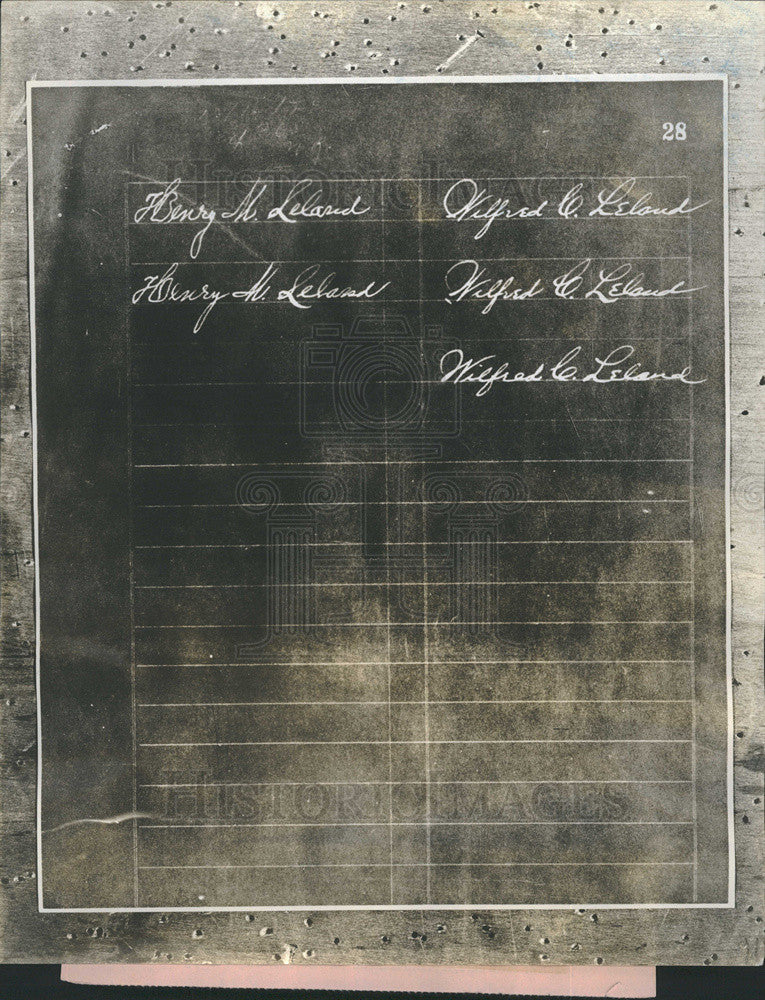 28
Henry M. Leland Wilfred C. Leland
Henry M. Leland Wilfred C. Leland
Wilfred C. Leland
HISTORIC IMAGES
HISTORIC IMAGES